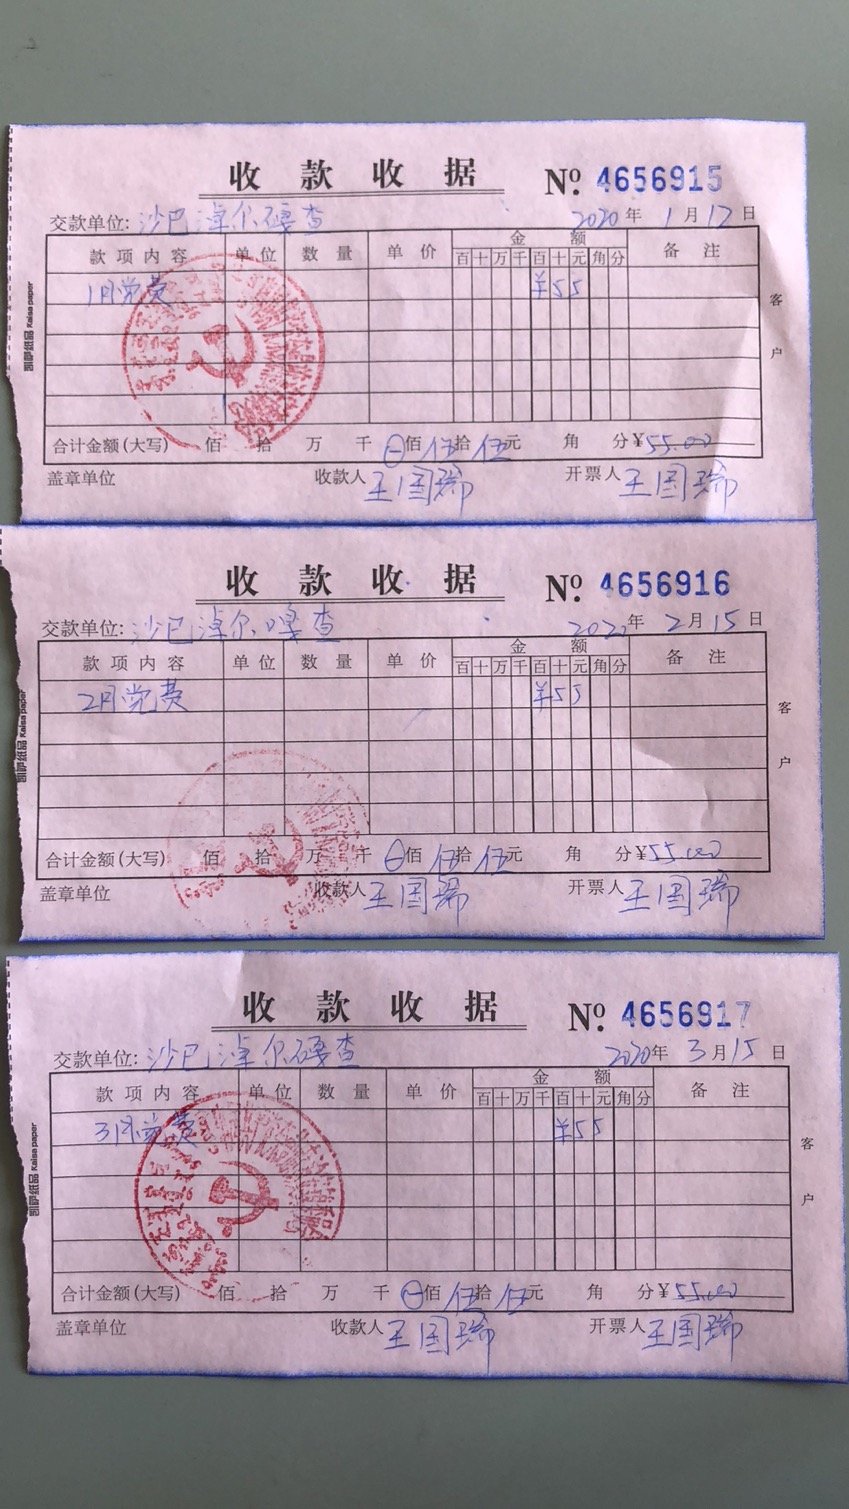 收款收据 Nº. 4656915
交款单位: 沙巴淖尔嘎查 2020年1月12日
款项内容 单位 数量 单价 金额 备注
百十万千百十元角分
1月党费 ¥55
合计金额(大写) 佰 拾 万 千 ⊖佰伍拾伍元 角 分¥55.00
盖章单位 收款人王国瑞 开票人王国瑞
客户
凯萨纸品 Kaisa paper
收款收据 Nº. 4656916
交款单位: 沙巴淖尔嘎查 2020年2月15日
款项内容 单位 数量 单价 金额 备注
百十万千百十元角分
2月党费 ¥55
合计金额(大写) 佰 拾 万 千 ⊖佰伍拾伍元 角 分¥55.00
盖章单位 收款人王国瑞 开票人王国瑞
客户
Kaisa paper
收款收据 Nº. 4656917
交款单位: 沙巴淖尔嘎查 2020年3月15日
款项内容 单位 数量 单价 金额 备注
百十万千百十元角分
3月党费 ¥55
合计金额(大写) 佰 拾 万 千 ⊖佰伍拾伍元 角 分¥55.00
盖章单位 收款人王国瑞 开票人王国瑞
客户
Kaisa paper